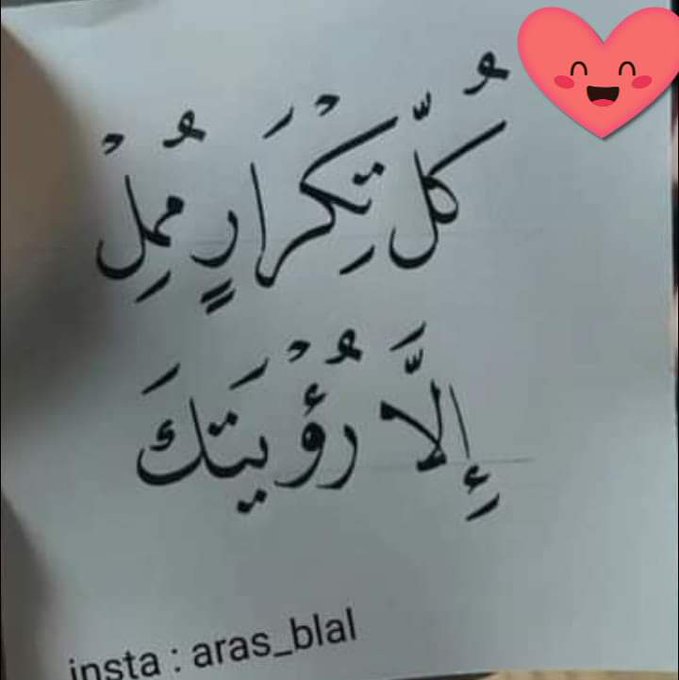 كُلُّ تِكْرَارٍ مُمِلْ
إِلَّا رُؤْيَتَكَ
insta : aras_blal